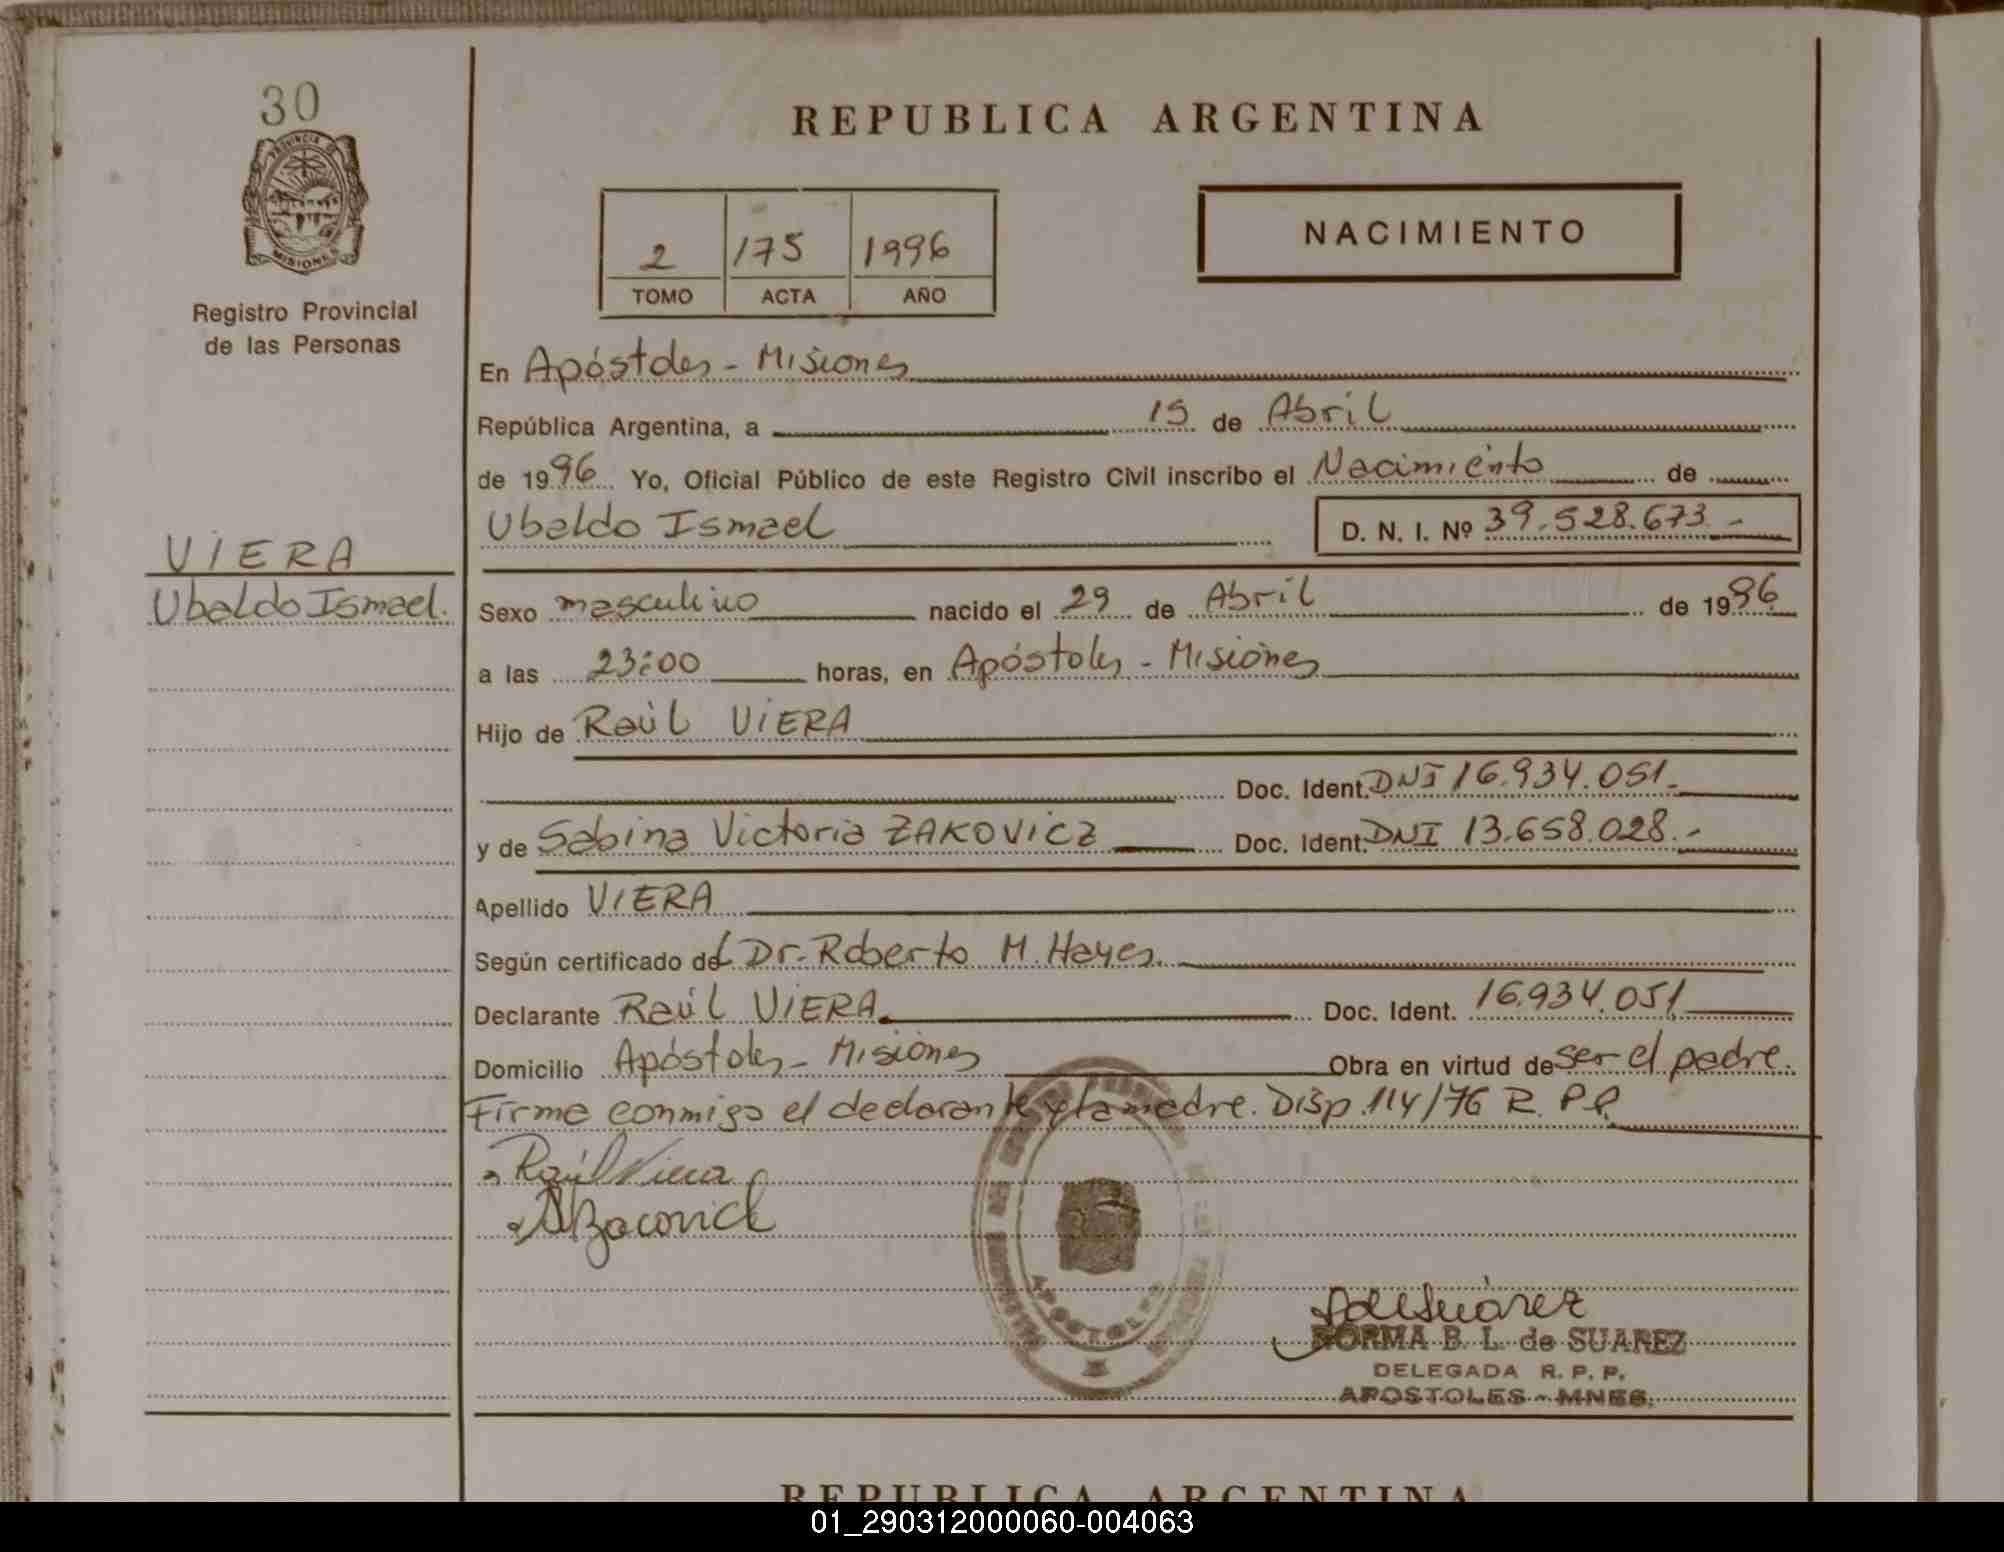 30
PROVINCIA DE
MISIONES
Registro Provincial
de las Personas
VIERA
Ubaldo Ismael.
REPUBLICA ARGENTINA
2 175 1996
TOMO ACTA AÑO
NACIMIENTO
En Apóstoles - Misiones
República Argentina, a 15 de Abril
de 1996 Yo, Oficial Público de este Registro Civil inscribo el Nacimiento de
Ubaldo Ismael D. N. I. Nº 39.528.673.-
Sexo masculino nacido el 29 de Abril de 1996
a las 23:00 horas, en Apóstoles - Misiones
Hijo de Raúl VIERA
Doc. Ident. DNI 16.934.051.-
y de Sabina Victoria ZAKOVICZ Doc. Ident. DNI 13.658.028.-
Apellido VIERA
Según certificado del Dr. Roberto M. Hayes.
Declarante Raúl VIERA. Doc. Ident. 16.934.051
Domicilio Apóstoles - Misiones Obra en virtud de ser el padre.
Firma conmigo el declarante y la madre. Disp. 114/76 R. P. P.
Raúl Viera
APOSTOLES
NORMA B. L. de SUAREZ
DELEGADA R. P. P.
APOSTOLES - MNES.
REPUBLICA ARGENTINA
01_290312000060-004063